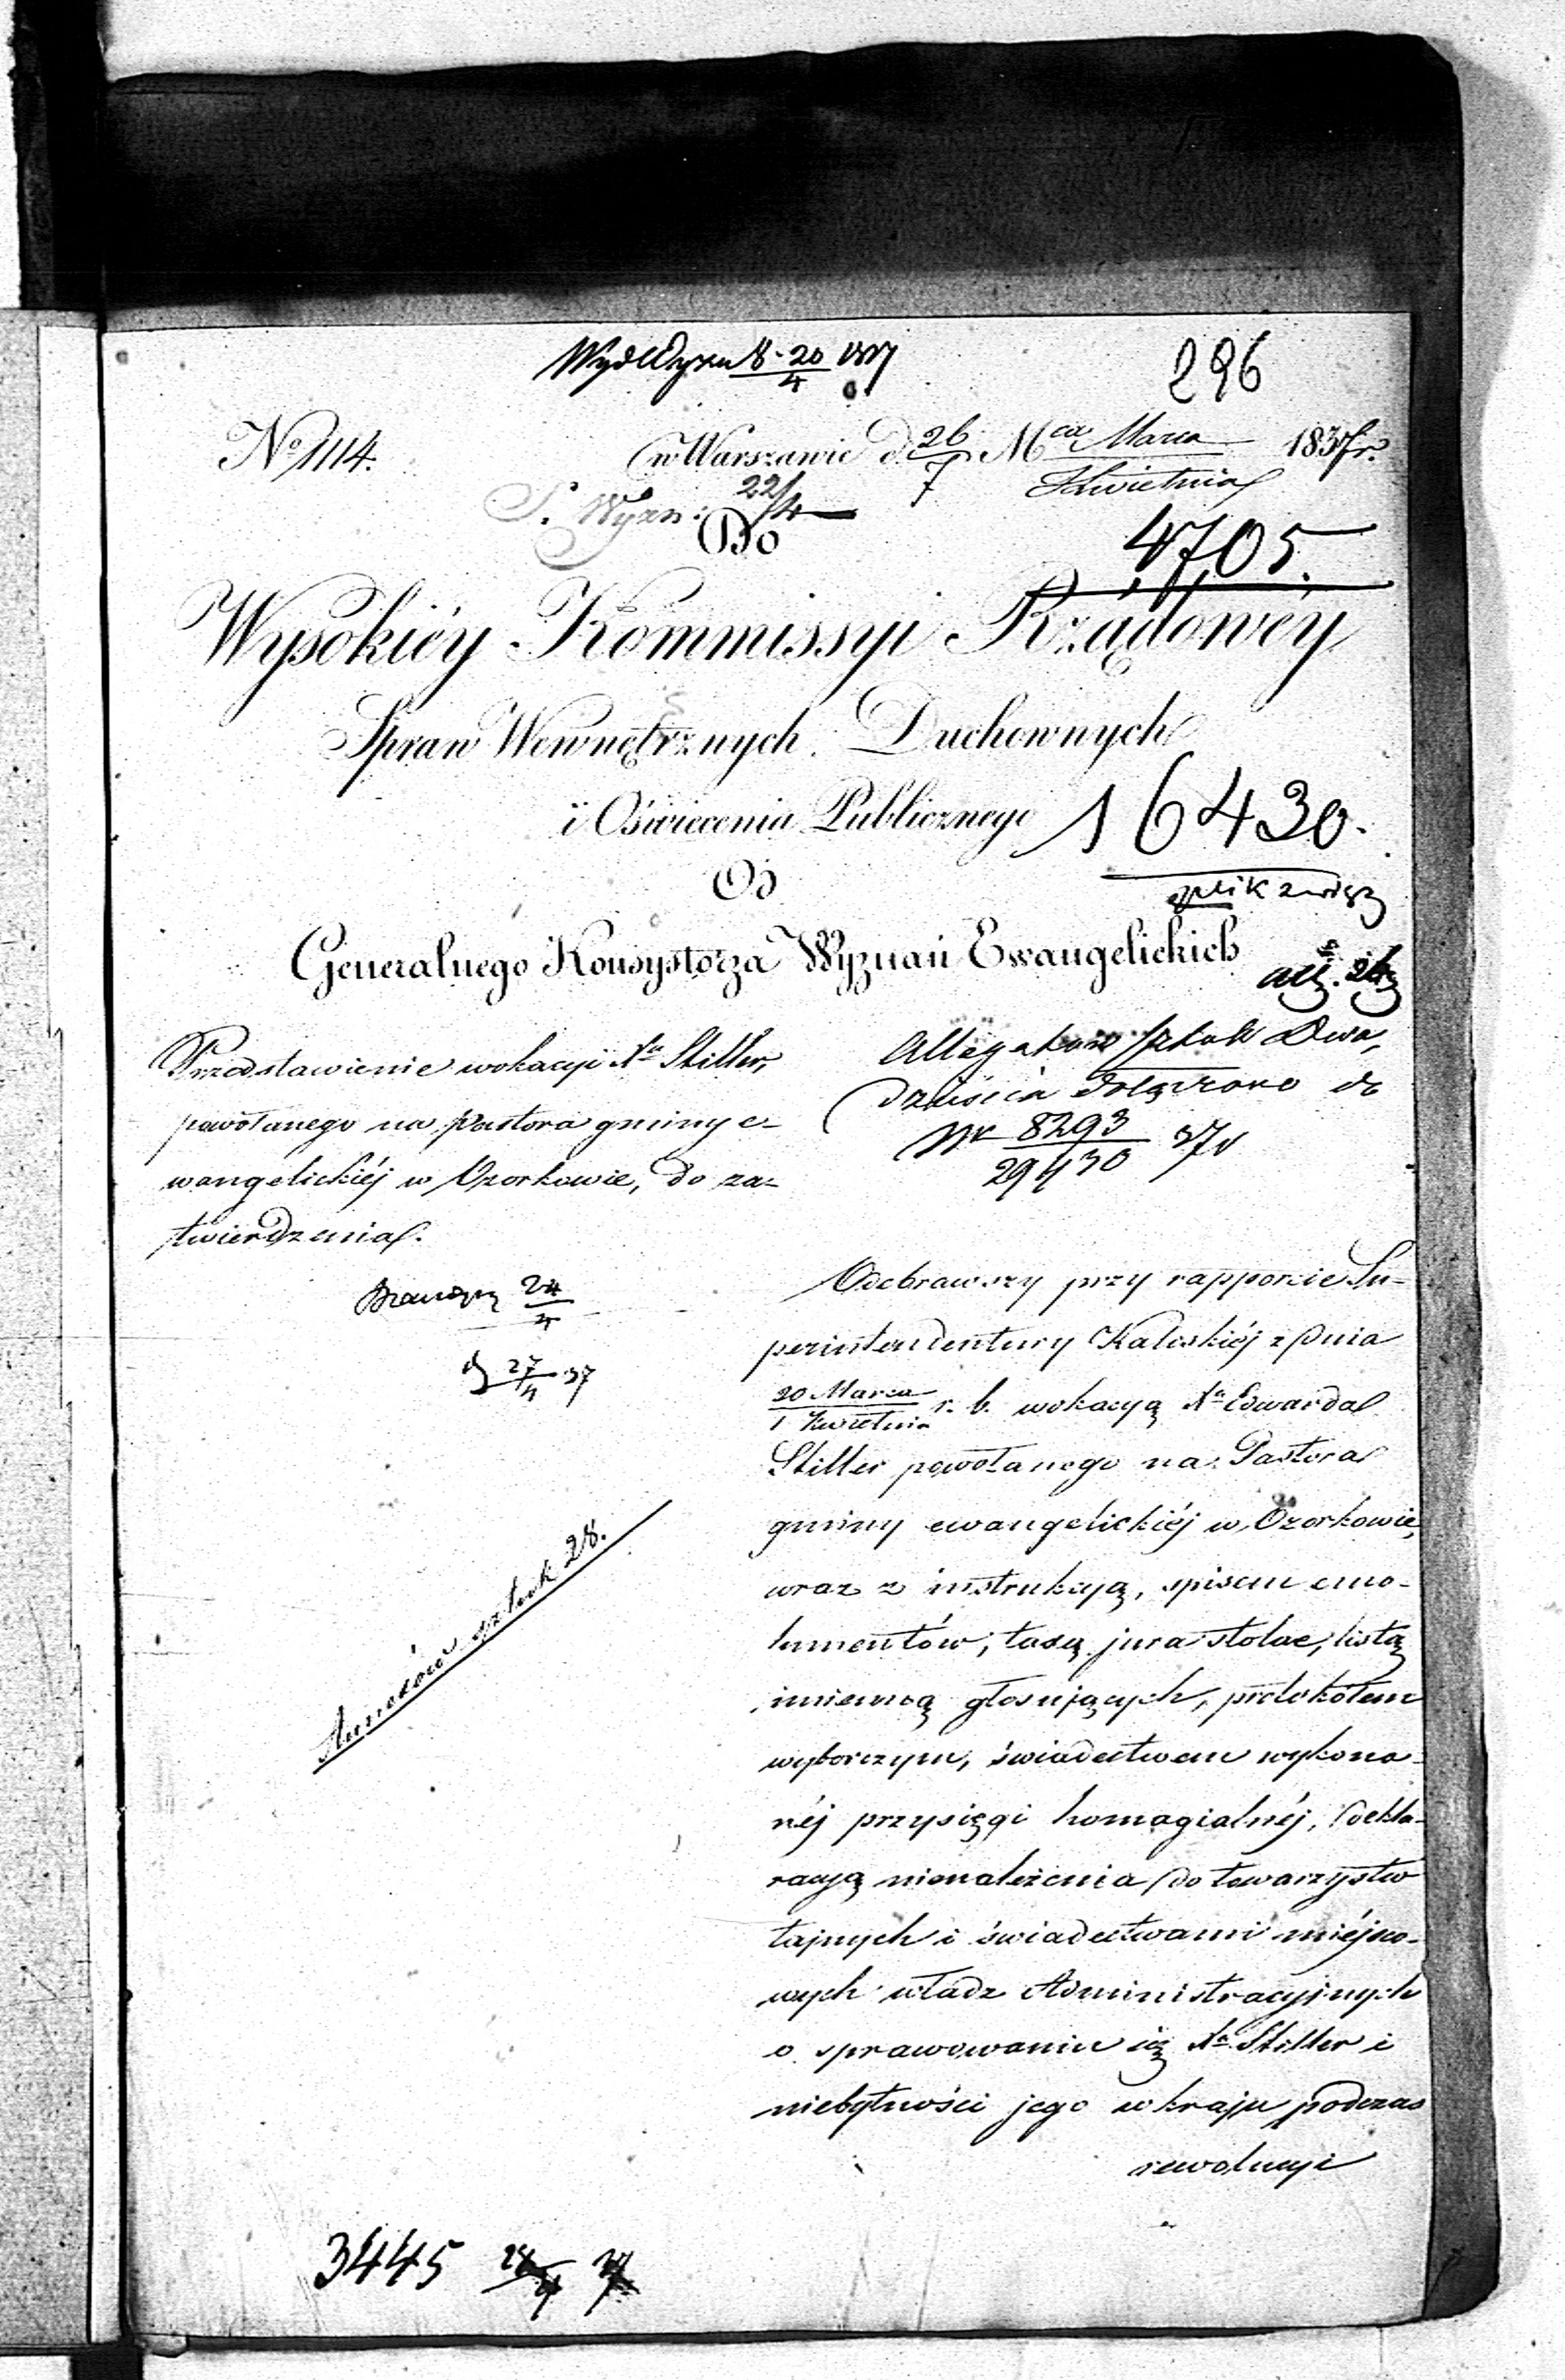 Wyd Wyzn 8-20/4 1837
296
No 1114.
w Warszawie d. 26/7 Mca Marca/Kwietnia 1837 r.
S. Wyzn: 22/4
Do
4705.
Wysokiéy Kommissyi Rządowéy
Spraw Wewnętrznych Duchownych
i Oświecenia Publicznego
16430.
Od
Generalnego Konsystorza Wyznań Ewangelickich
Przedstawienie wokacyi Xa Stiller,
powołanego na Pastora gminy e-
wangelickiéj w Ozorkowie, do za-
twierdzenia.
24/4
27/4 37
Allegatów sztuk Dwa-
dzieścia dołączono do
Nr 8293/29430 37
Odebrawszy przy rapporcie Su-
perintendentury Kaliskiéj z dnia
20 Marca/1 Kwietnia r. b. wokacyą Xa Edwarda
Stiller powołanego na Pastora
gminy ewangelickiéj w Ozorkowie,
wraz z instrukcyą, spisem emo-
lumentów, taxą jura stolae, listą
imienną głosujących, protokołem
wyborczym, świadectwem wykona-
néj przysięgi homagialnéj, dekla-
racyą nienależenia do towarzystw
tajnych i świadectwami miéjsco-
wych władz Administracyjnych
o sprawowaniu się Xa Stiller i
niebytności jego w kraju podczas
rewolucyi
Annexów sztuk 28.
3445